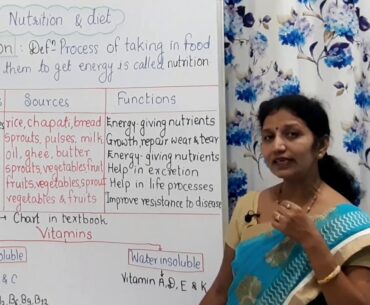 Nutrition & diet
on : Defⁿ Process of taking in food
them to get energy is called nutrition
Sources Functions
rice, chapati, bread Energy-giving nutrients
sprouts, pulses, milk Growth, repair wear & tear
oil, ghee, butter Energy-giving nutrients
sprouts, vegetables fruit Help in excretion
fruits, vegetables, sprout Help in life processes
vegetables & fruits Improve resistance to disease
→ Chart in textbook
Vitamins
oluble Water insoluble
& C Vitamin A, D, E & K
B₁₂